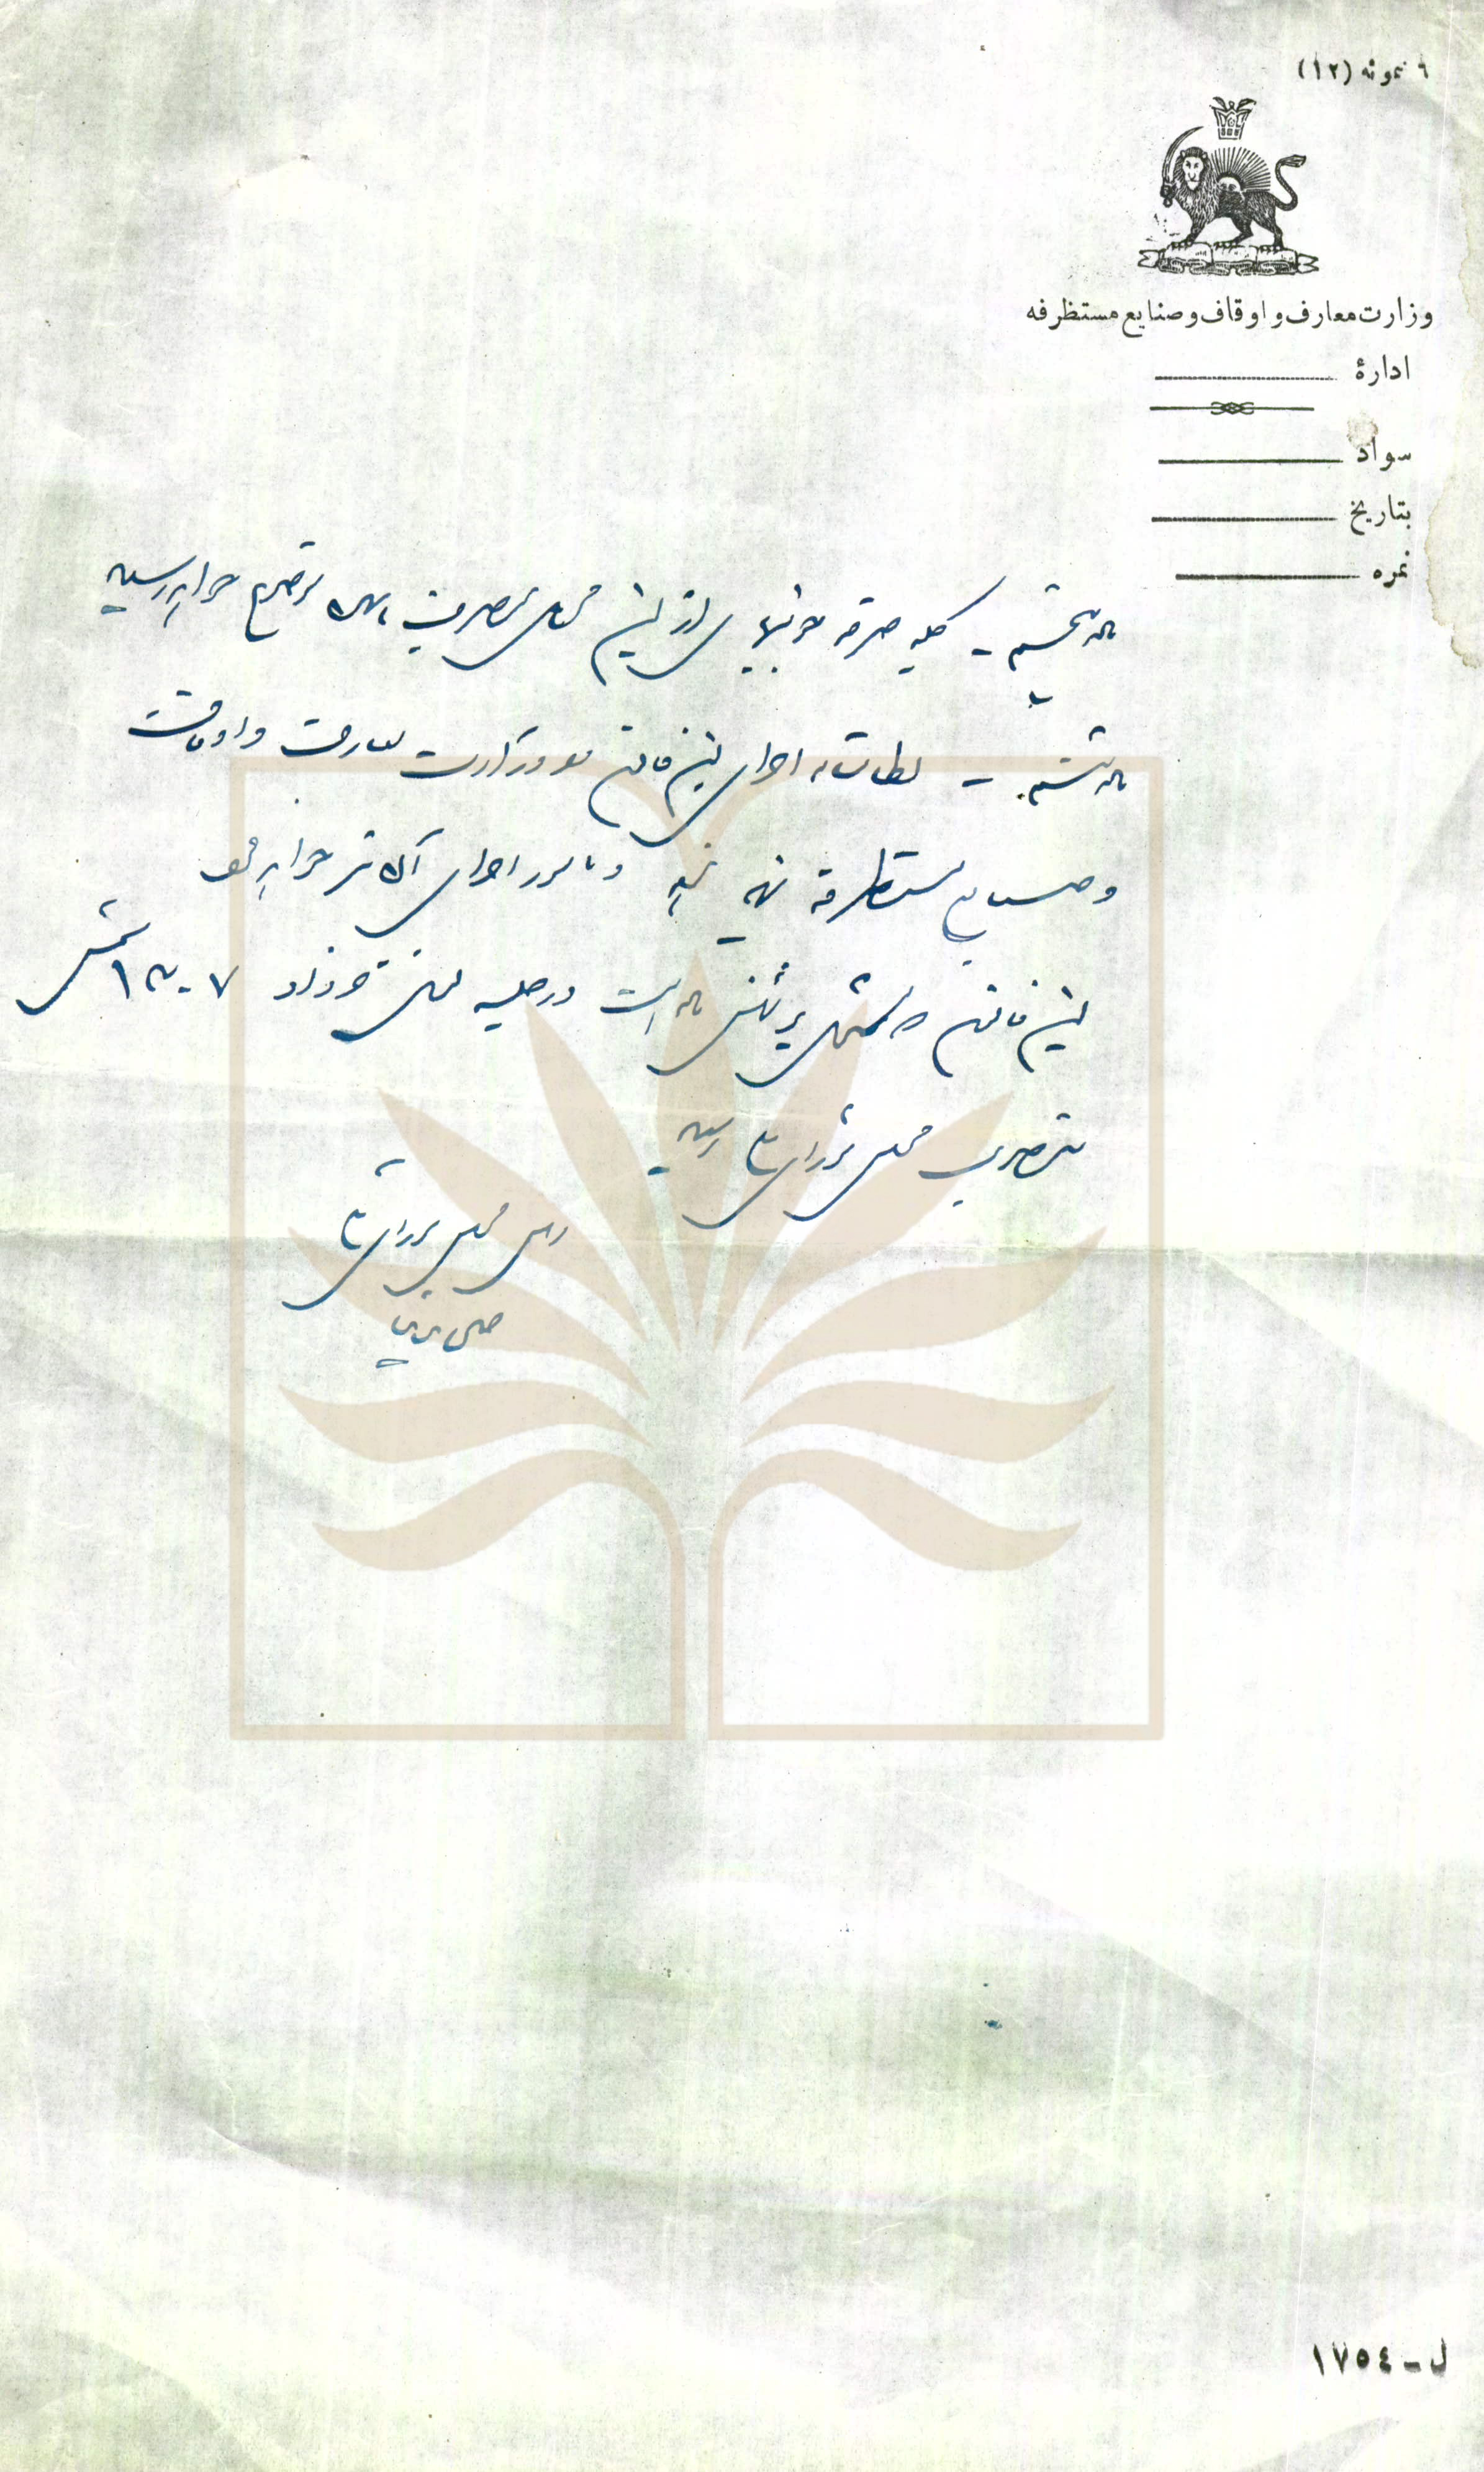 ٦ نمونه (١٢)
وزارت معارف و اوقاف و صنایع مستظرفه
ادارهٔ
سواد
بتاریخ
نمره
ماده پنجم - کلیه صرفه جوئیهای این محل بمصرف خواهد رسید
ماده ششم - نظامنامه اجرای این قانون را وزارت معارف و اوقاف
و صنایع مستظرفه تهیه نموده و مأمور اجرای آن نیز خواهد بود
این قانون که مشتمل بر شش ماده است در جلسه خرداد ١٣٠٧ شمسی
بتصویب مجلس شورای ملی رسید
رئیس مجلس شورای ملی
ل - ١٧٥٤